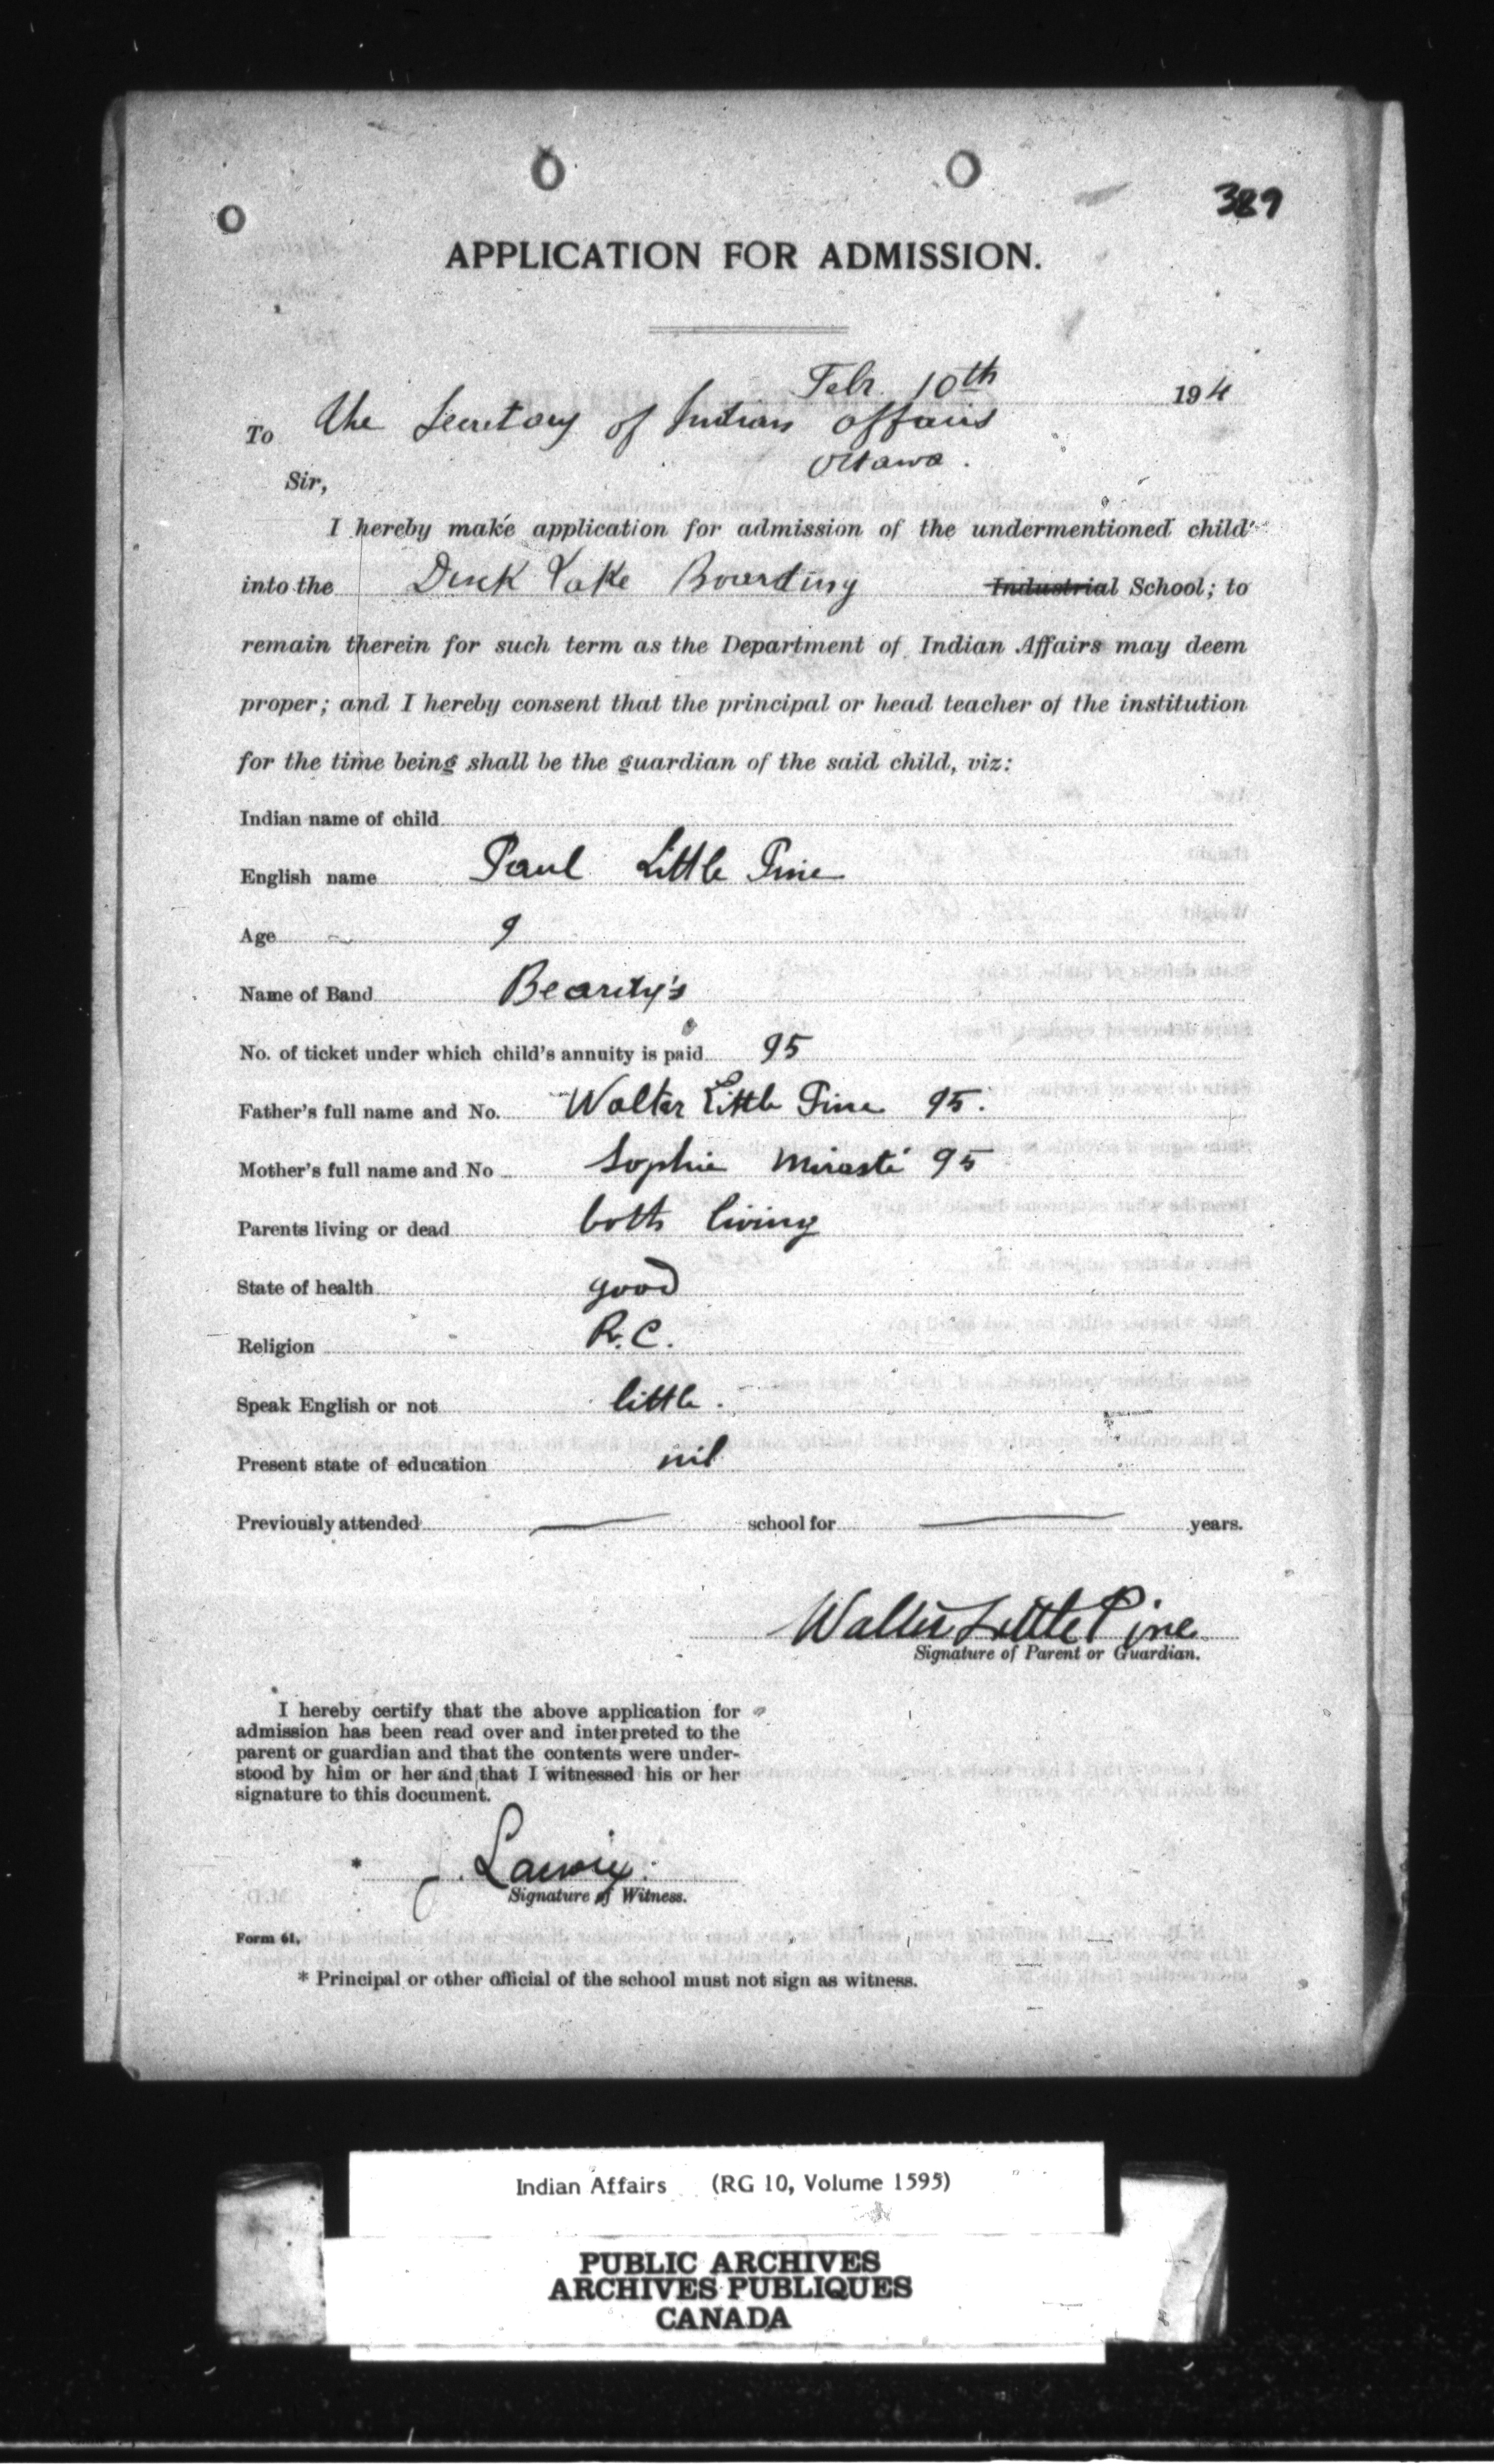 389
APPLICATION FOR ADMISSION.
Febr. 10th 194
To The Secretary of Indian Affairs
Ottawa.
Sir,
I hereby make application for admission of the undermentioned child
into the Duck Lake Boarding Industrial School; to
remain therein for such term as the Department of Indian Affairs may deem
proper; and I hereby consent that the principal or head teacher of the institution
for the time being shall be the guardian of the said child, viz:
Indian name of child
English name Paul Little Pine
Age 9
Name of Band Beardy's
No. of ticket under which child's annuity is paid 95
Father's full name and No. Walter Little Pine 95.
Mother's full name and No Sophie 95
Parents living or dead both living
State of health good
Religion R.C.
Speak English or not little.
Present state of education nil
Previously attended — school for — years.
Walter Little Pine
Signature of Parent or Guardian.
I hereby certify that the above application for
admission has been read over and interpreted to the
parent or guardian and that the contents were under-
stood by him or her and that I witnessed his or her
signature to this document.
* J. Lacroix.
Signature of Witness.
Form 61.
* Principal or other official of the school must not sign as witness.
Indian Affairs (RG 10, Volume 1595)
PUBLIC ARCHIVES
ARCHIVES PUBLIQUES
CANADA